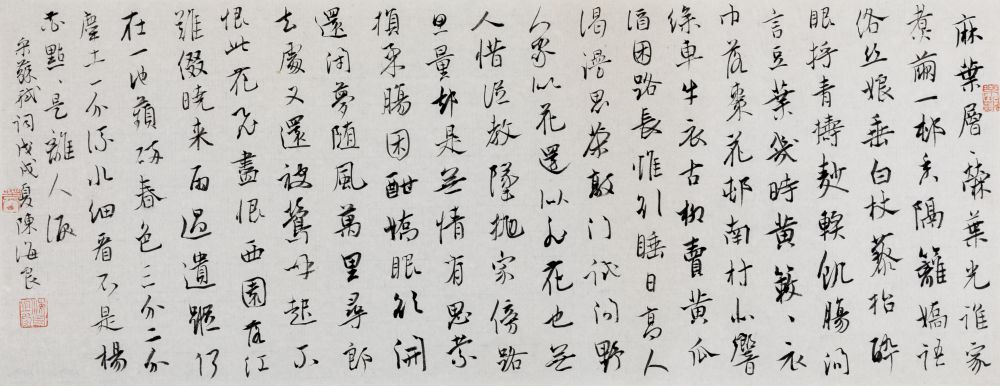 麻葉層、檾葉光誰家
煮繭一邨香隔籬嬌語
络丝娘垂白杖藜抬醉
眼捋青擣麨軟飢腸问
言豆葉幾時黄簌、衣
巾落棗花邨南村小響
繰車牛衣古柳賣黄瓜
酒困路長惟引睡日高人
渴漫思茶敲门试问野
人家似花還似非花也無
人惜從教墜抛家傍路
思量却是無情有思縈
損柔腸困酣嬌眼欲開
還闭夢随風萬里尋郎
去處又還被鶯呼起不
恨此花飛盡恨西園落红
難缀曉来雨過遺踪何
在一池蘋碎春色三分二分
塵土一分流水细看不是楊
花點、是離人淚
宋蘇軾词戊戌夏陳海良